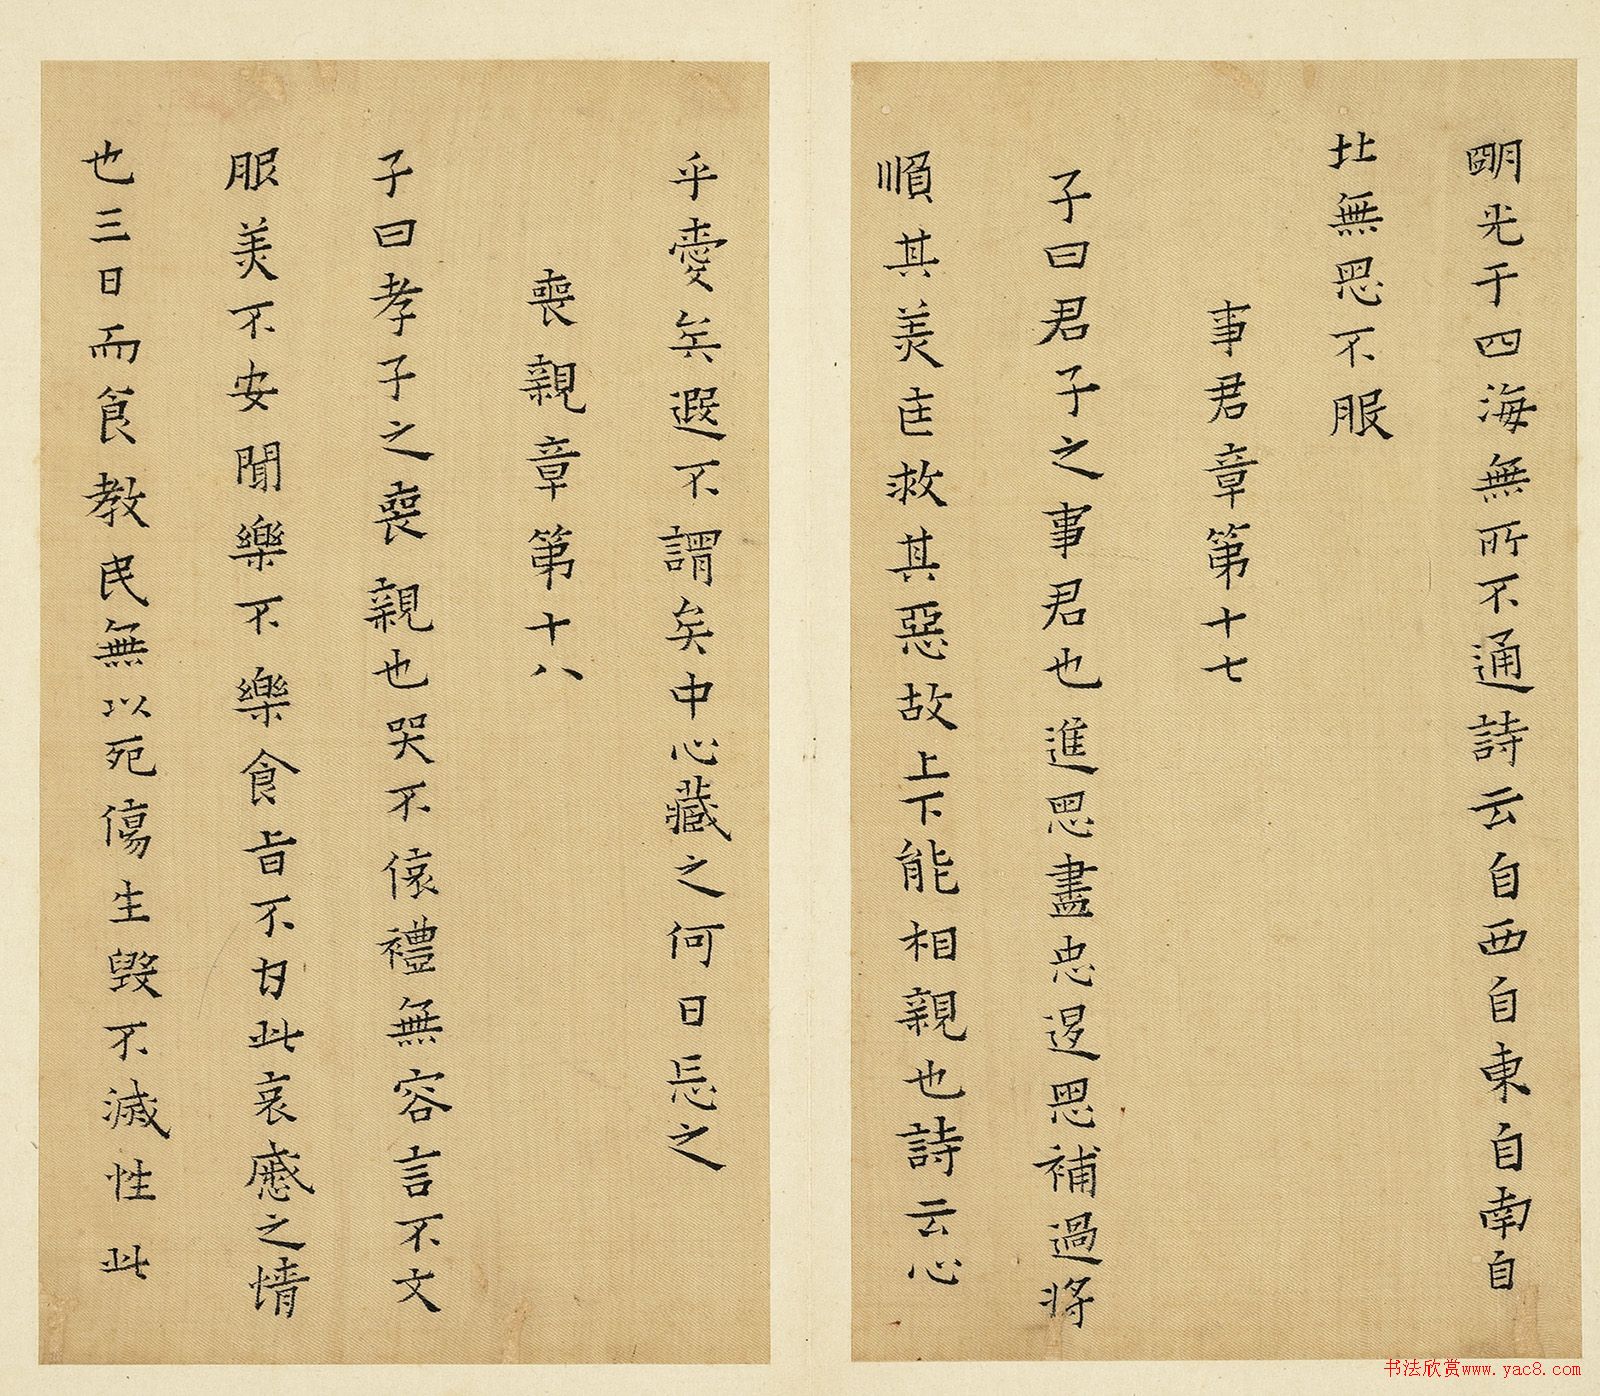 朙光于四海無所不通詩云自西自東自南自
北無思不服
事君章第十七
子曰君子之事君也進思盡忠退思補過將
順其美匡救其惡故上下能相親也詩云心
乎愛矣遐不謂矣中心藏之何日忘之
喪親章第十八
子曰孝子之喪親也哭不偯禮無容言不文
服美不安聞樂不樂食旨不甘此哀慼之情
也三日而食教民無以死傷生毀不滅性此
书法欣赏www.yac8.com